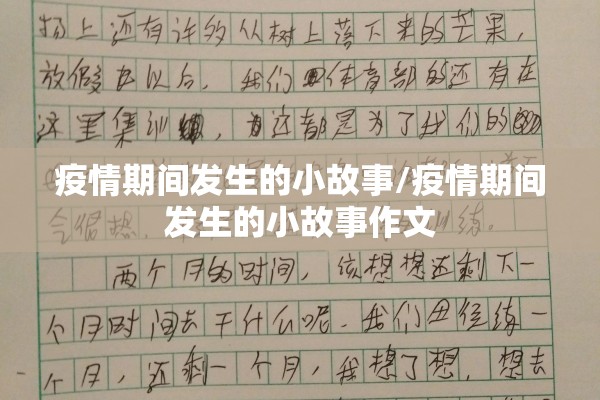 场上还有许多从树上落下来的芒果,
放假以后, 我们体育部的还有在
这里集训, 这都是为了我们的
疫情期间发生的小故事/疫情期间
发生的小故事作文
会很想, 练.
两个月的时间, 该想想还剩下一
个月时间去干什么呢. 我们已经练一
个月, 还剩一个月, 我想了想, 想去